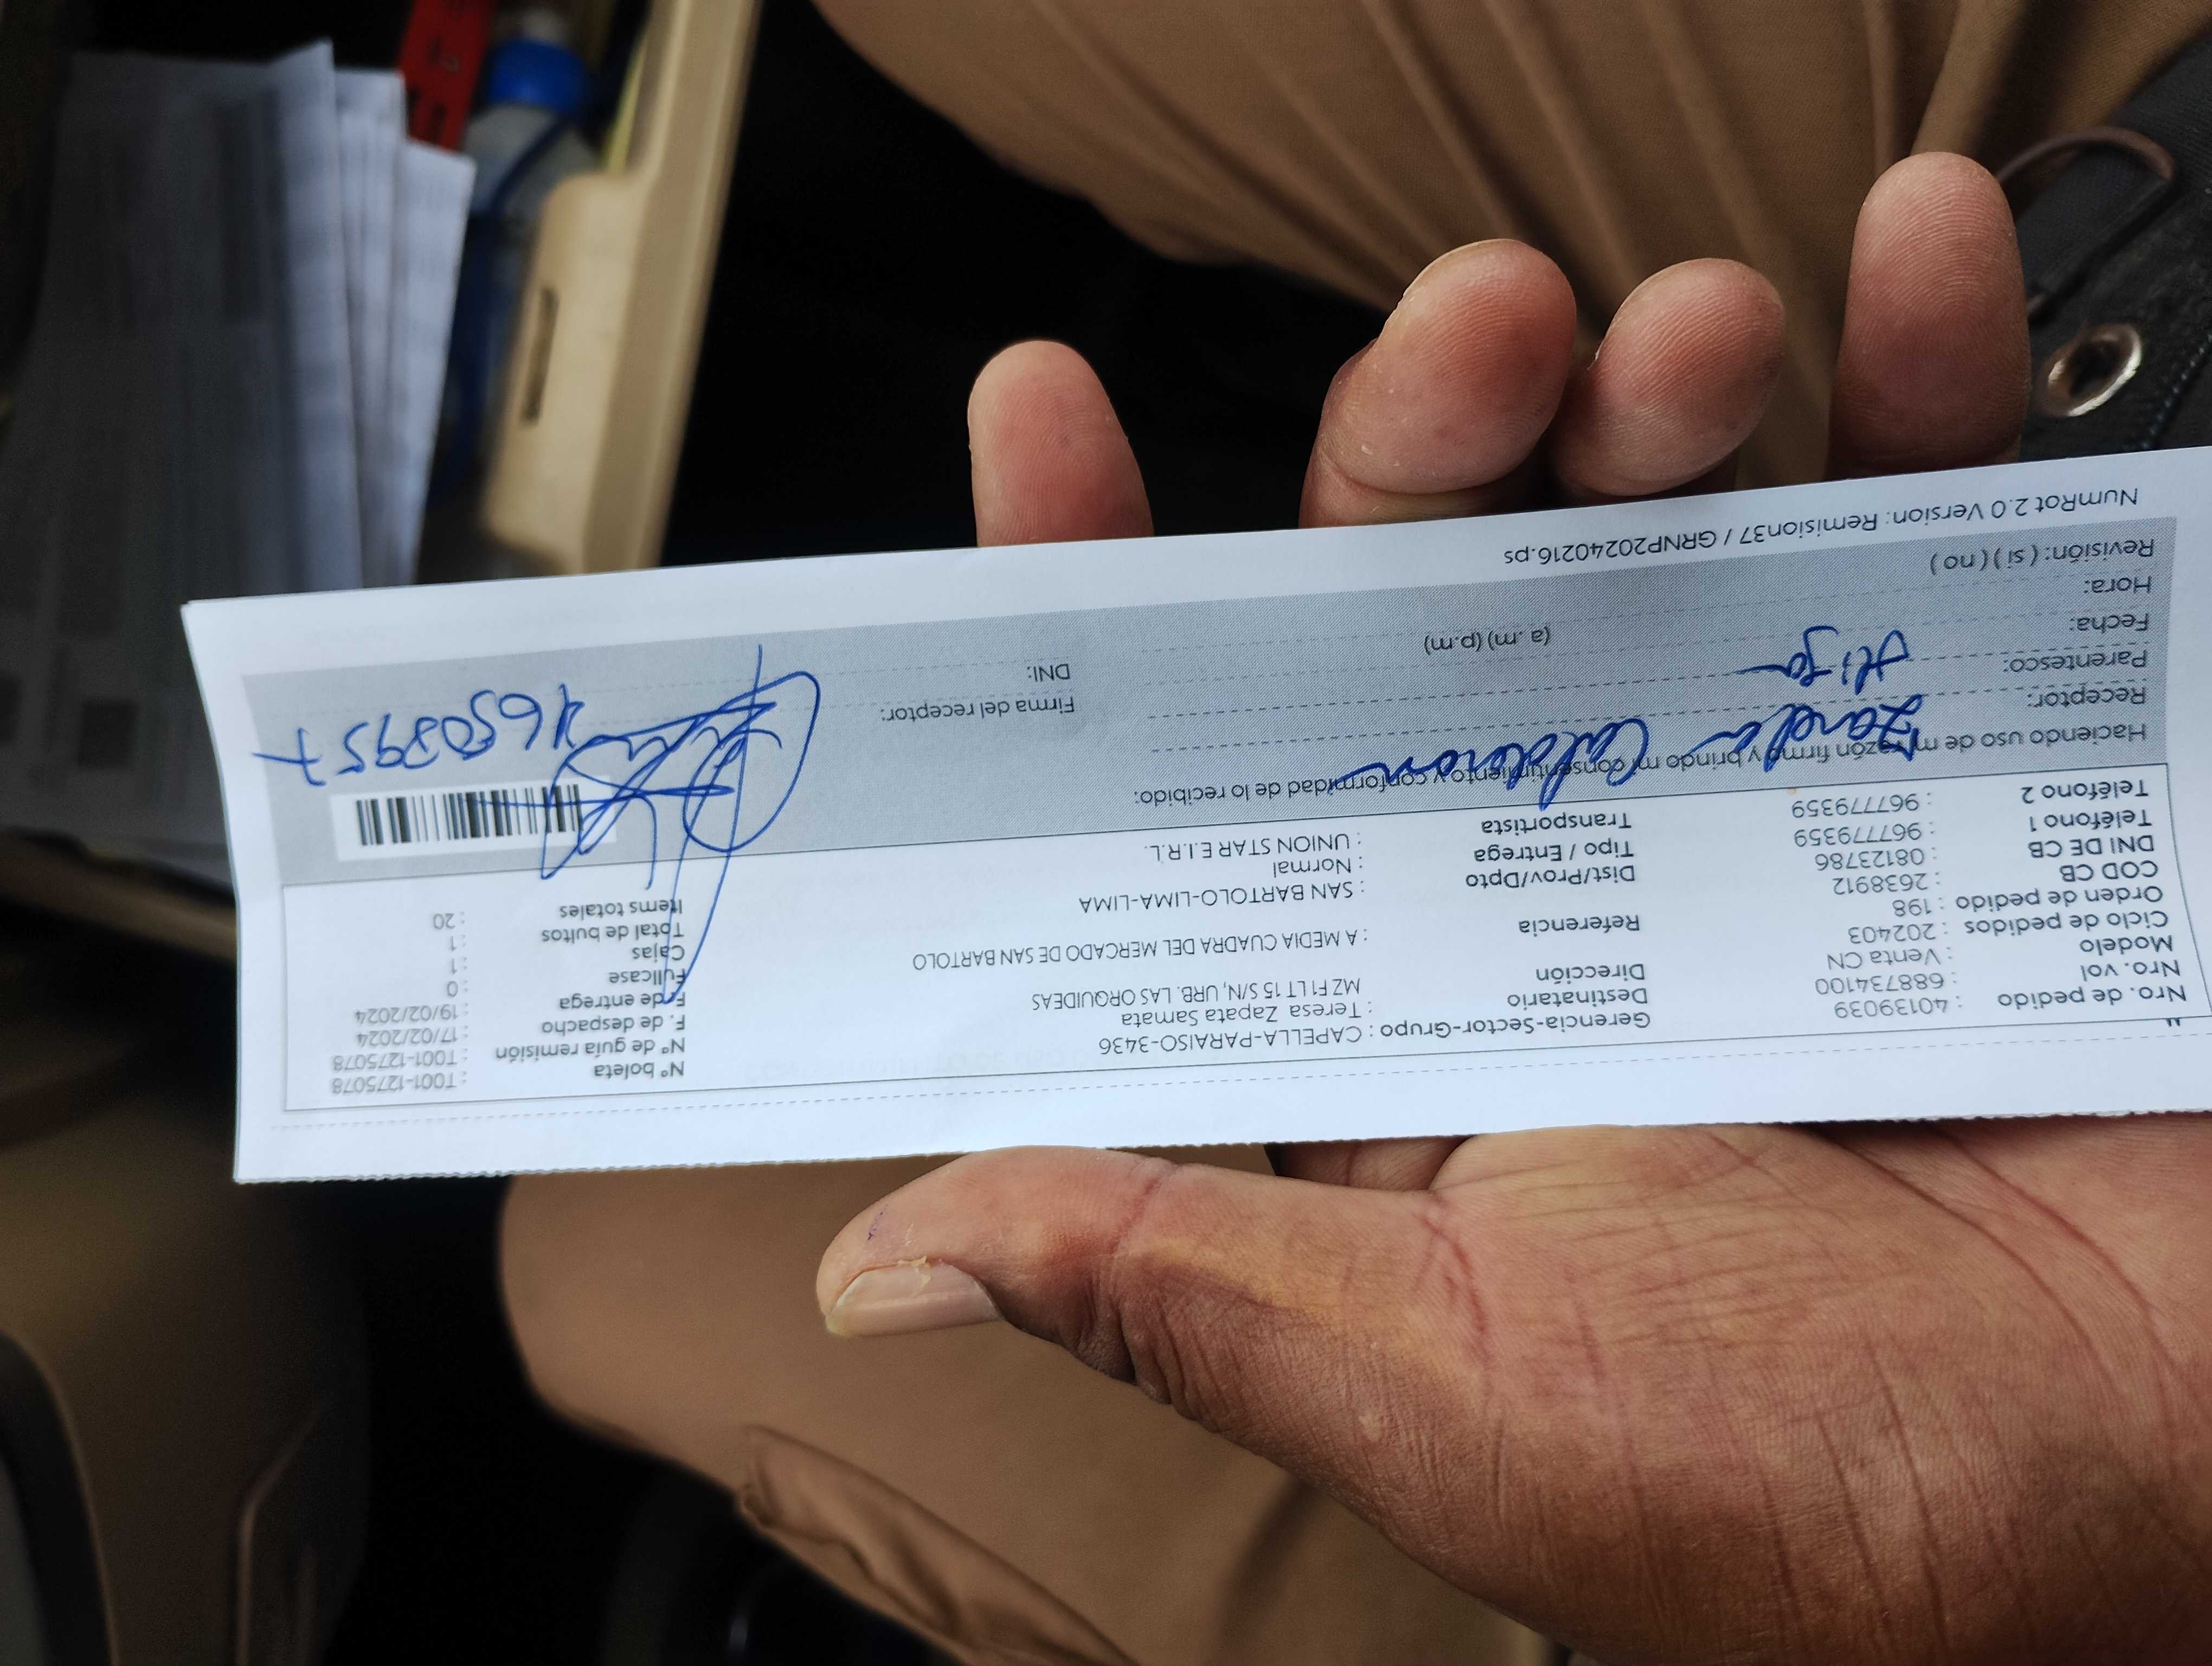 Nro. de pedido : 40139039
Nro. vol : 688734100
Modelo : Venta CN
Ciclo de pedidos : 202403
Orden de pedido : 198
COD CB : 2638912
DNI DE CB : 08123786
Teléfono 1 : 967779359
Teléfono 2 : 967779359
Gerencia-Sector-Grupo : CAPELLA-PARAISO-3436
Destinatario : Teresa Zapata Samata
Dirección MZ F1 LT 15 S/N, URB. LAS ORQUIDEAS
Referencia : A MEDIA CUADRA DEL MERCADO DE SAN BARTOLO
Dist/Prov/Dpto : SAN BARTOLO-LIMA-LIMA
Tipo / Entrega : Normal
Transportista : UNION STAR E.I.R.L.
N° boleta : T001-1275078
N° de guía remisión : T001-1275078
F. de despacho : 17/02/2024
F. de entrega : 19/02/2024
Fullcase : 0
Cajas : 1
Total de bultos : 1
Items totales : 20
Haciendo uso de mi razón firmo y brindo mi consentimiento y conformidad de lo recibido:
Receptor: Calderon
Parentesco: Hija
Fecha:
Hora: (a. m) (p.m)
Revisión: ( si ) ( no )
Firma del receptor:
DNI:
NumRot 2.0 Version: Remision37 / GRNP20240216.ps